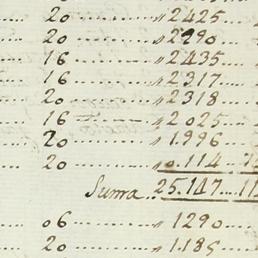 20 ........ „ 2425 ....
20 ........ „ 2290 ....
16 ........ „ 2435 ....
16 ........ „ 2317 ....
20 ........ „ 2318 ....
16 ........ „ 2025 ....
20 ........ „ 1.996 ....
20 ........ „ 0.114 ....
Suma .. 25.147 .... 11
06 ........ „ 1290 ....
20 ........ „ 1.185 ....